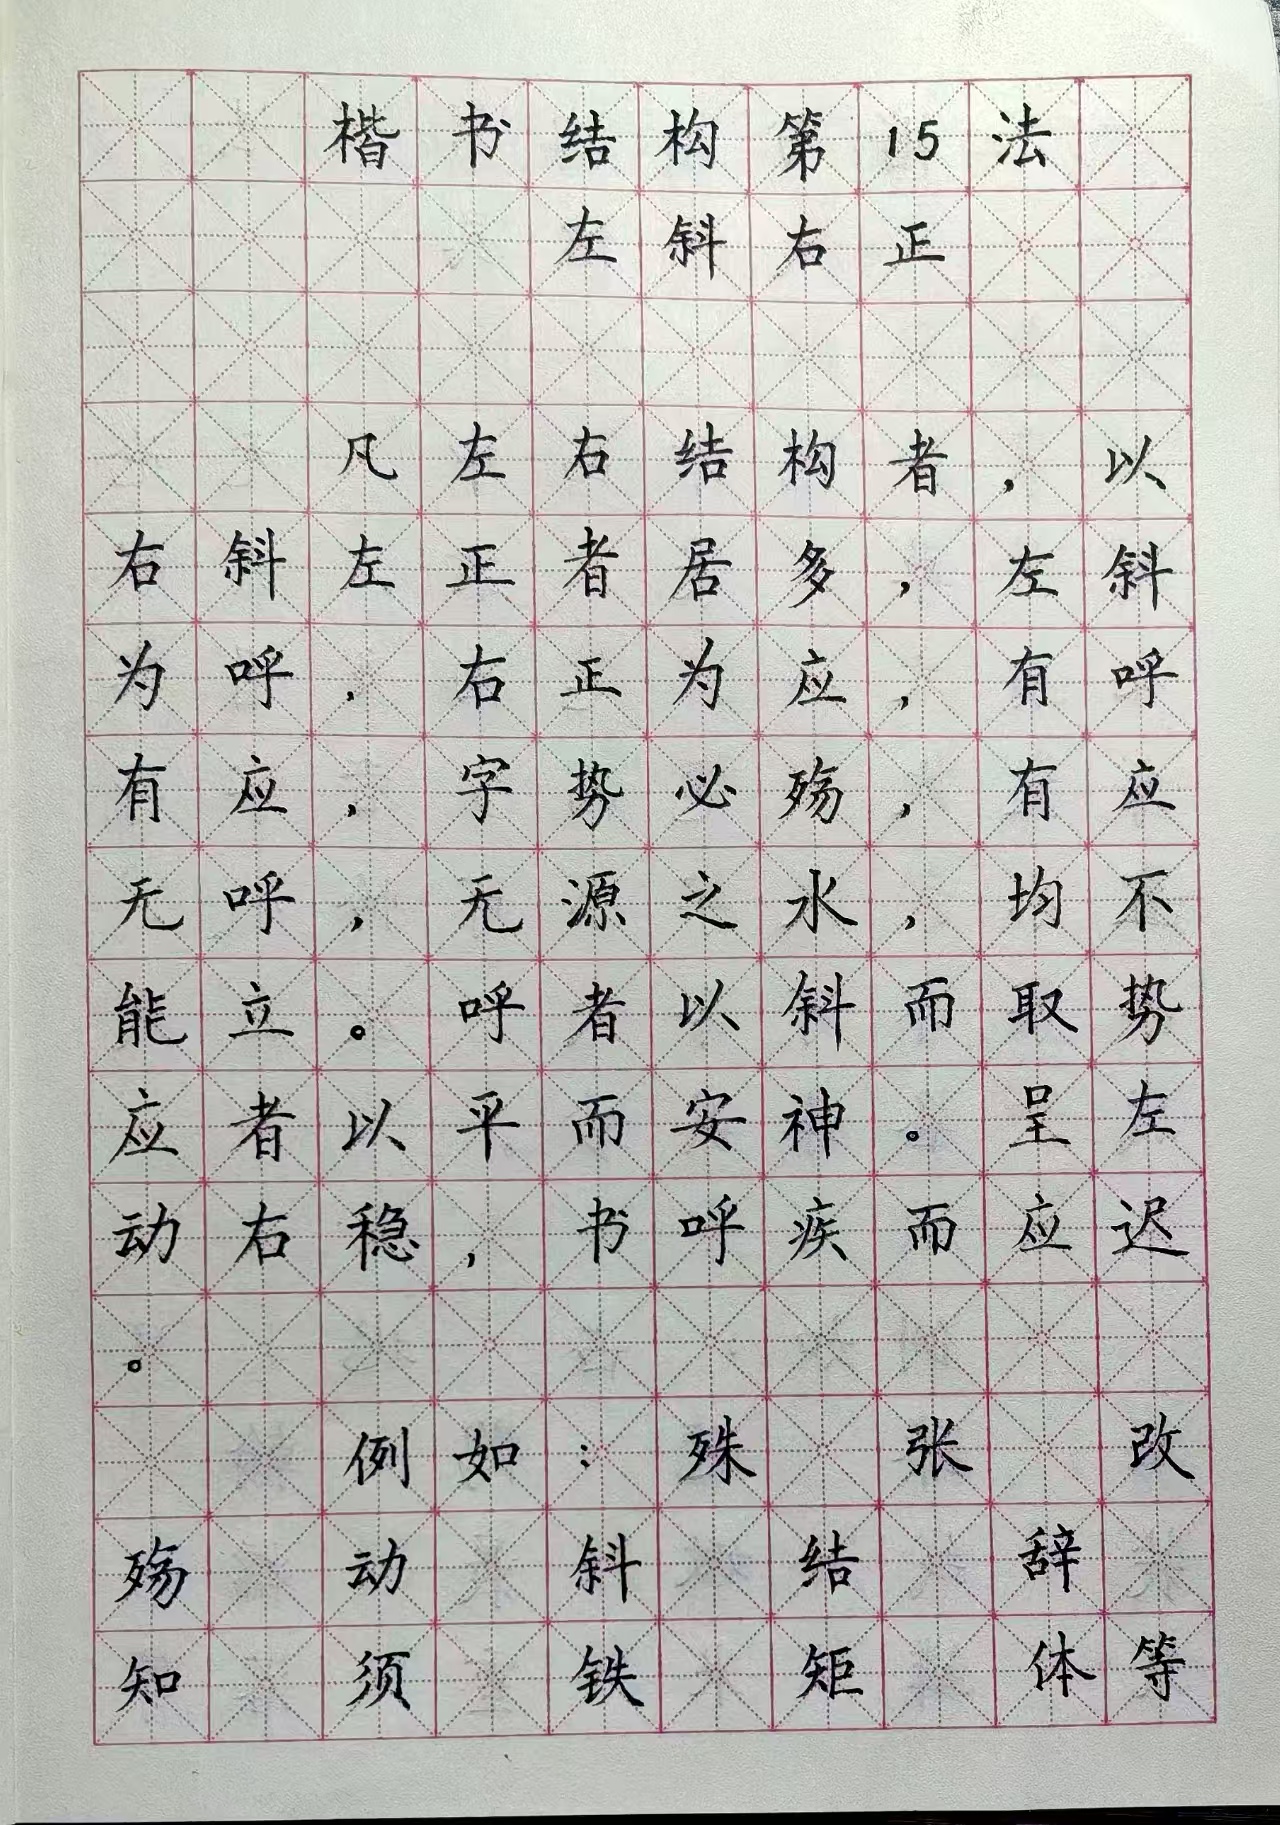 楷书结构第15法
左斜右正
凡左右结构者，以
右斜左正者居多，左斜
为呼，右正为应，有呼
有应，字势必殇，有应
无呼，无源之水，均不
能立。呼者以斜而取势
应者以平而安神。呈左
动右稳，书呼疾而应迟
。
例如：殊 张 改
殇 动 斜 结 辞
知 须 铁 矩 体等